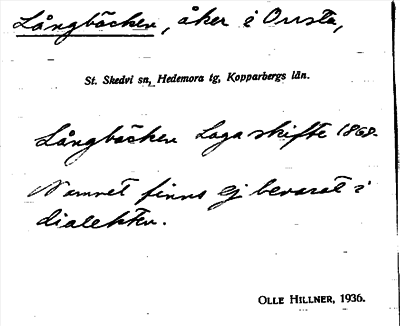 Långbäcken, åker i Onsta,
St. Skedvi sn, Hedemora tg, Kopparbergs län.
Långbäcken Laga skifte 1868.
Namnet finns ej bevarat i
dialekten.
OLLE HILLNER, 1936.